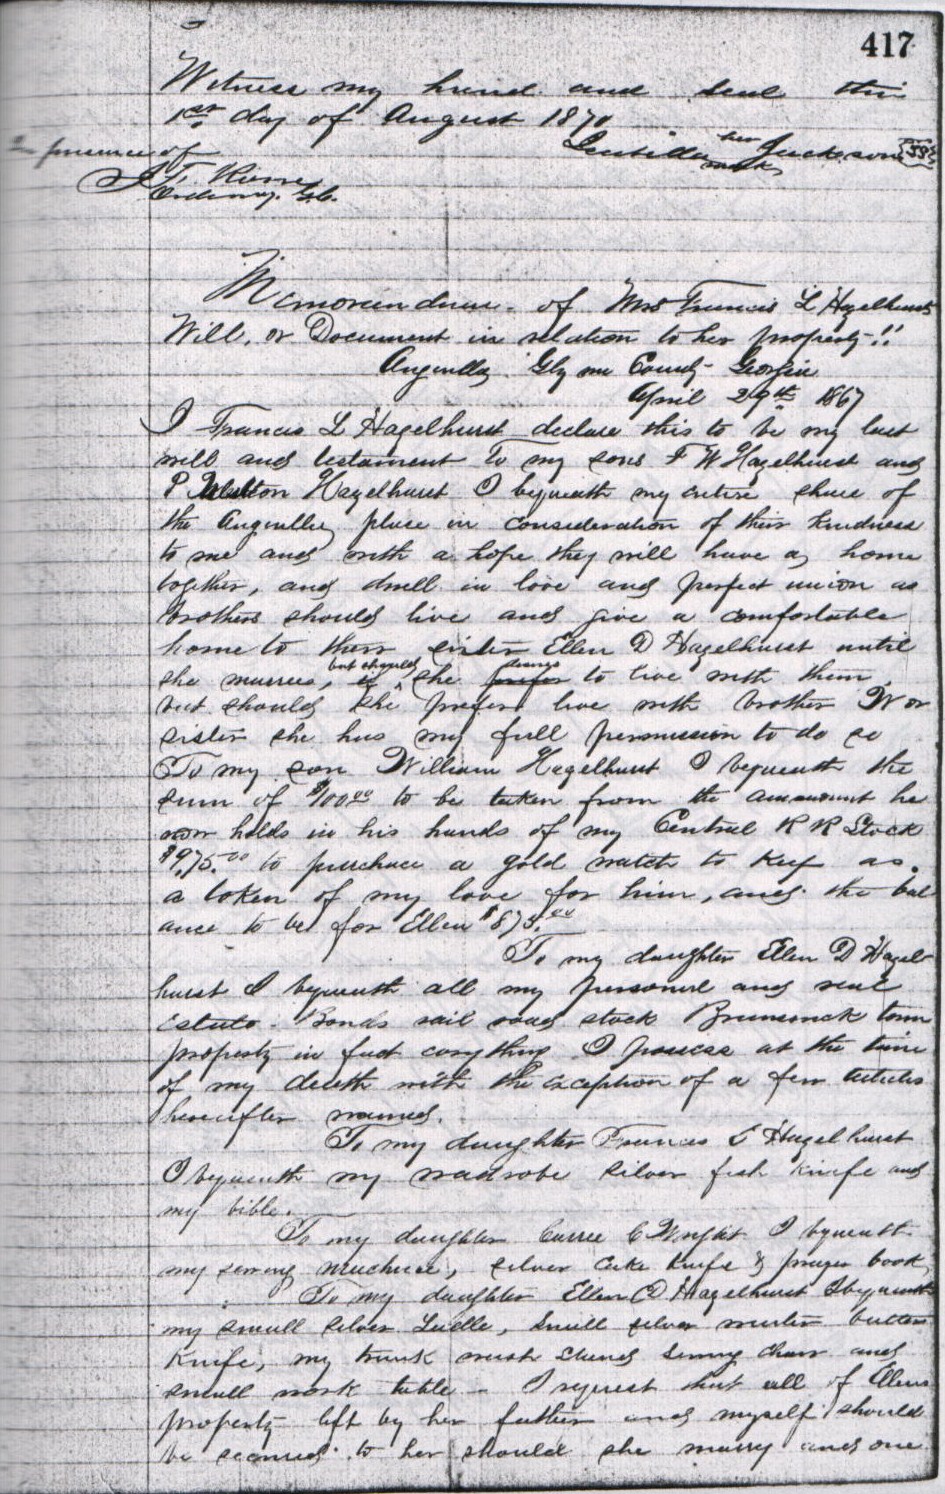 417
Witness my hand and seal this
1st day of August 1870
her
Jackson
mark
In presence of
Ordinary G.C.
Memorandum - of Mrs Francis L Hazelhursts
Will, or Document in relation to her property !!
Glynn County Georgia
April 29th 1867
I Francis L Hazelhurst declare this to be my last
will and testament To my sons F W Hazelhurst and
P Hazelhurst I bequeath my entire share of
the place in consideration of their kindness
to me and with a hope they will have a home
together, and dwell in love and perfect union as
brothers should live and give a comfortable
home to their sister Ellen D Hazelhurst until
but should
she marries, she to live with them,
but should she prefer live with brother W or
sister she has my full permission to do so
To my son William Hazelhurst I bequeath the
sum of $100.00 to be taken from the amount he
now holds in his hands of my Central R R Stock
$975.00 to purchace a gold watch to Keep as
a token of my love for him, and the bal
ance to be for Ellen $875.00
To my daughter Ellen D Hazel
hurst I bequeath all my personal and real
Estate - Bonds rail road stock Brunswick town
property in fact everything I posess at the time
of my death with the exception of a few articles
hereafter named.
To my daughter Frances L Hazelhurst
I bequeath my wadrobe silver fish knife and
my bible.
To my daughter Carree C Wright I bequeath
my sewing machine, silver cake knife & prayer book
To my daughter Ellen D Hazelhurst I bequeath
my small silver Ladle, small silver butter
Knife, my trunk wash stand sewing chair and
small work table - I request that all of Ellens
property left by her father and myself should
be secured to her should she marry and one